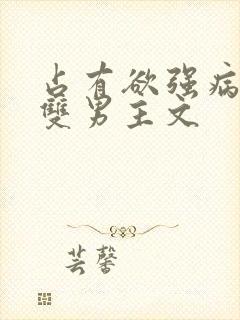 占有欲强病
雙男主文
芸馨